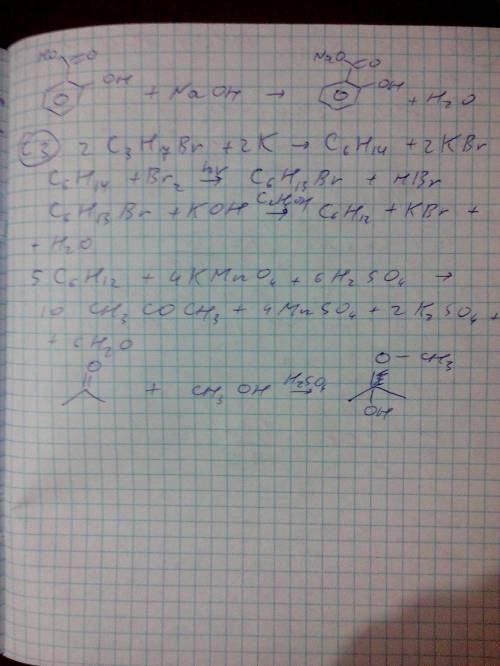 HO O NaO O
OH + NaOH → OH + H2O
C3 2 C3H7Br + 2K → C6H14 + 2KBr
C6H14 + Br2 → C6H13Br + HBr
C6H13Br + KOH → C6H12 + KBr +
+ H2O
5 C6H12 + 4KMnO4 + 6H2SO4 →
10 CH3COCH3 + 4MnSO4 + 2K2SO4 +
+ 6H2O
O + CH3OH H2SO4 → O – CH3
OH